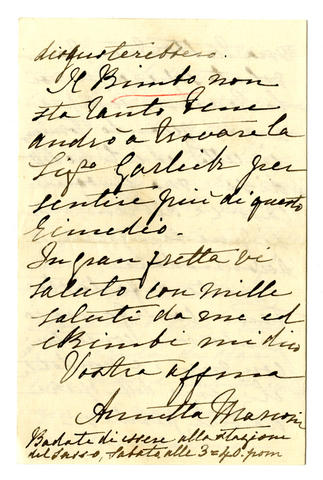 disgusterebbero.
Il Bimbo non
sta tanto bene
andrò a trovare la
Sigra Garlick per
sentire più di questo
rimedio.
In gran fretta vi
saluto con mille
saluti da me ed
i Bimbi mi dico
Vostra affma
Annetta Marconi
Badate di essere alla stazione
del Sasso, Sabato alle 3=40. pom